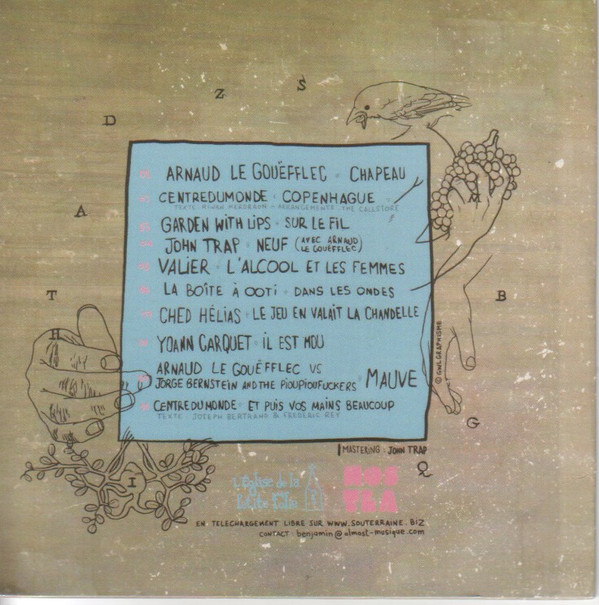 S
Z
D
A
T
H
I
M
B
G
ARNAUD LE GOUËFFLEC - CHAPEAU
CENTREDUMONDE - COPENHAGUE
GARDEN WITH LIPS - SUR LE FIL
JOHN TRAP - NEUF (AVEC ARNAUD LE GOUËFFLEC)
VALIER - L'ALCOOL ET LES FEMMES
LA BOÎTE À OOTI - DANS LES ONDES
CHED HÉLIAS - LE JEU EN VALAIT LA CHANDELLE
YOANN CARQUET - IL EST MOU
ARNAUD LE GOUËFFLEC VS
JORGE BERNSTEIN AND THE PIOUPIOUFUCKERS - MAUVE
CENTREDUMONDE - ET PUIS VOS MAINS BEAUCOUP
TEXTE JOSEPH BERTRAND & FREDERIC REY
© GWLGRAPHISME
MASTERING : JOHN TRAP
L'Église de la
EN TELECHARGEMENT LIBRE SUR WWW.SOUTERRAINE.BIZ
CONTACT : benjamin@almost-mosique.com